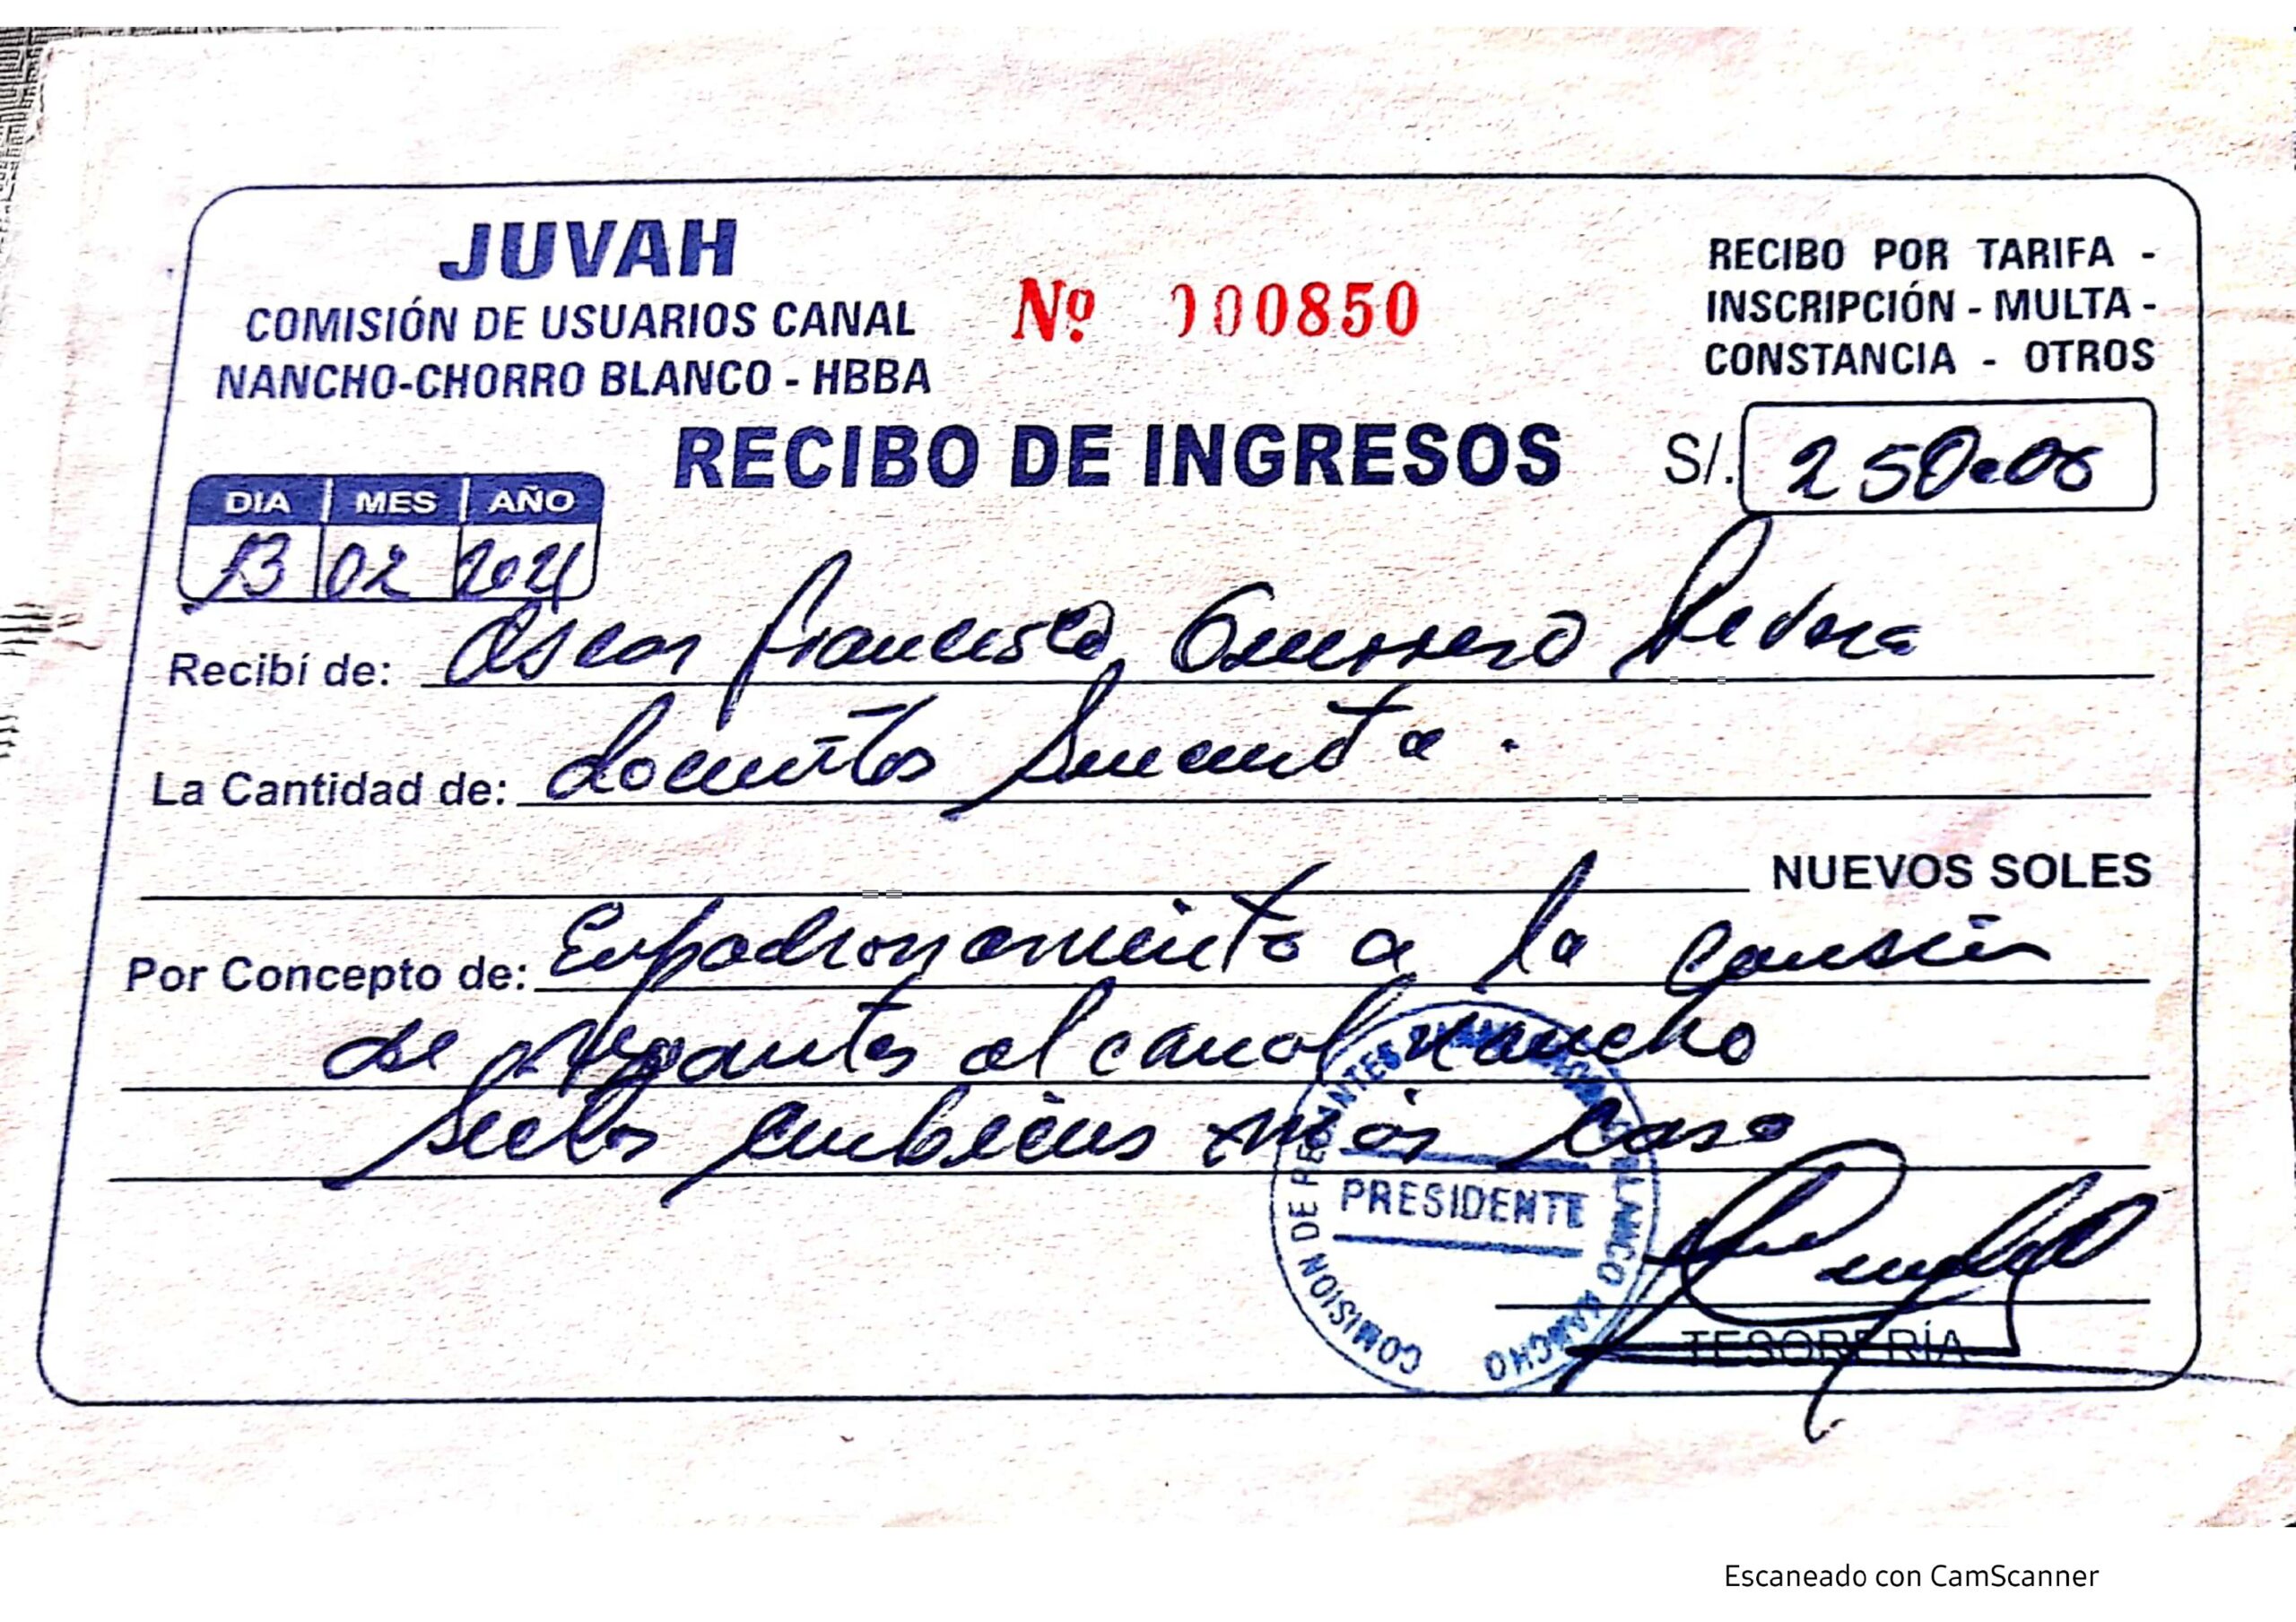 JUVAH
COMISIÓN DE USUARIOS CANAL
NANCHO-CHORRO BLANCO - HBBA
Nº 000850
RECIBO POR TARIFA -
INSCRIPCIÓN - MULTA -
CONSTANCIA - OTROS
RECIBO DE INGRESOS
S/. 250.00
DIA MES AÑO
13 02 2021
Recibí de: Oscar Francisco Guerrero
La Cantidad de: docientos sincuenta.
NUEVOS SOLES
Por Concepto de: Enpadronamiento a la
de regantes al canal nancho
casa
COMISION DE REGANTES BLANCO NANCHO
PRESIDENTE
TESORERÍA
Escaneado con CamScanner